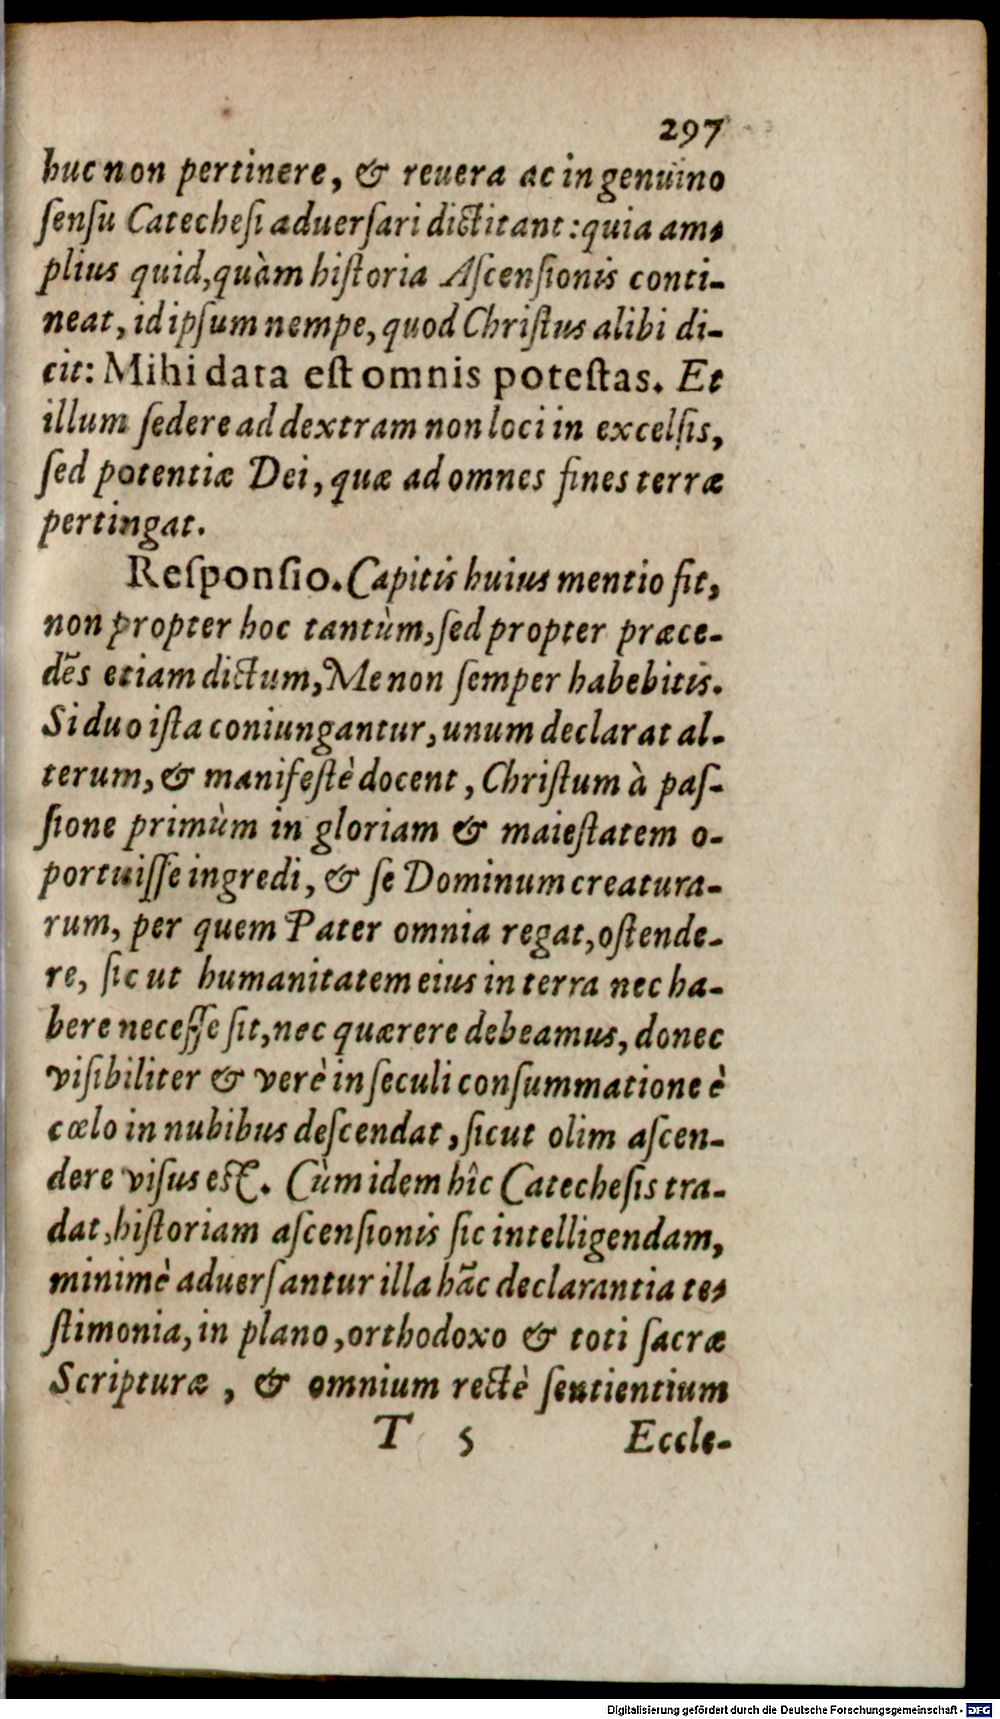 297
huc non pertinere, & reuera ac in genuino
ſenſu Catecheſi aduerſari dictitant: quia am-
plius quid, quàm hiſtoria Aſcenſionis conti-
neat, id ipſum nempe, quod Chriſtus alibi di-
cit: Mihi data eſt omnis poteſtas. Et
illum ſedere ad dextram non loci in excelſis,
ſed potentiæ Dei, quæ ad omnes fines terræ
pertingat.
Reſponſio. Capitis huius mentio fit,
non propter hoc tantùm, ſed propter præce-
dẽs etiam dictum, Me non ſemper habebitis.
Si duo iſta coniungantur, unum declarat al-
terum, & manifeſtè docent, Chriſtum à paſ-
ſione primùm in gloriam & maieſtatem o-
portuiſſe ingredi, & ſe Dominum creatura-
rum, per quem Pater omnia regat, oſtende-
re, ſic ut humanitatem eius in terra nec ha-
bere neceſſe ſit, nec quærere debeamus, donec
viſibiliter & verè in ſeculi conſummatione è
cœlo in nubibus deſcendat, ſicut olim aſcen-
dere viſus eſt. Cùm idem hîc Catecheſis tra-
dat, hiſtoriam aſcenſionis ſic intelligendam,
minimè aduerſantur illa hãc declarantia te-
ſtimonia, in plano, orthodoxo & toti ſacræ
Scripturæ, & omnium rectè ſentientium
T 5 Eccle-
Digitalisierung gefördert durch die Deutsche Forschungsgemeinschaft - DFG